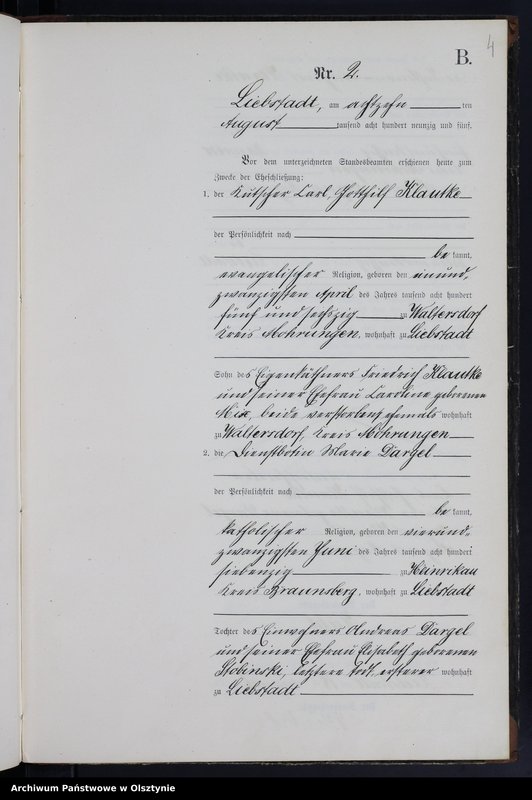 4
B.
Nr. 2.
Liebstadt, am achtzehn ten
August tausend acht hundert neunzig und fünf.
Vor dem unterzeichneten Standesbeamten erschienen heute zum
Zwecke der Eheschließung:
1. der Kutscher Carl, Gotthilf Klautke
der Persönlichkeit nach
be kannt,
evangelischer Religion, geboren den einund-
zwanzigsten April des Jahres tausend acht hundert
fünf und sechszig zu Waltersdorf
Kreis Mohrungen, wohnhaft zu Liebstadt
Sohn des Eigenkäthners Friedrich Klautke
und seiner Ehefrau Caroline geborenen
Mix, beide verstorben ehemals wohnhaft
zu Waltersdorf, Kreis Mohrungen
2. die Dienstbotin Marie Dargel
der Persönlichkeit nach
be kannt,
katholischer Religion, geboren den vierund-
zwanzigsten Juni des Jahres tausend acht hundert
siebenzig zu Heinrikau
Kreis Braunsberg, wohnhaft zu Liebstadt
Tochter des Einwohners Andreas Dargel
und seiner Ehefrau Elisabeth geborenen
Stobinski, letztere todt, ersterer wohnhaft
zu Liebstadt
Archiwum Państwowe w Olsztynie